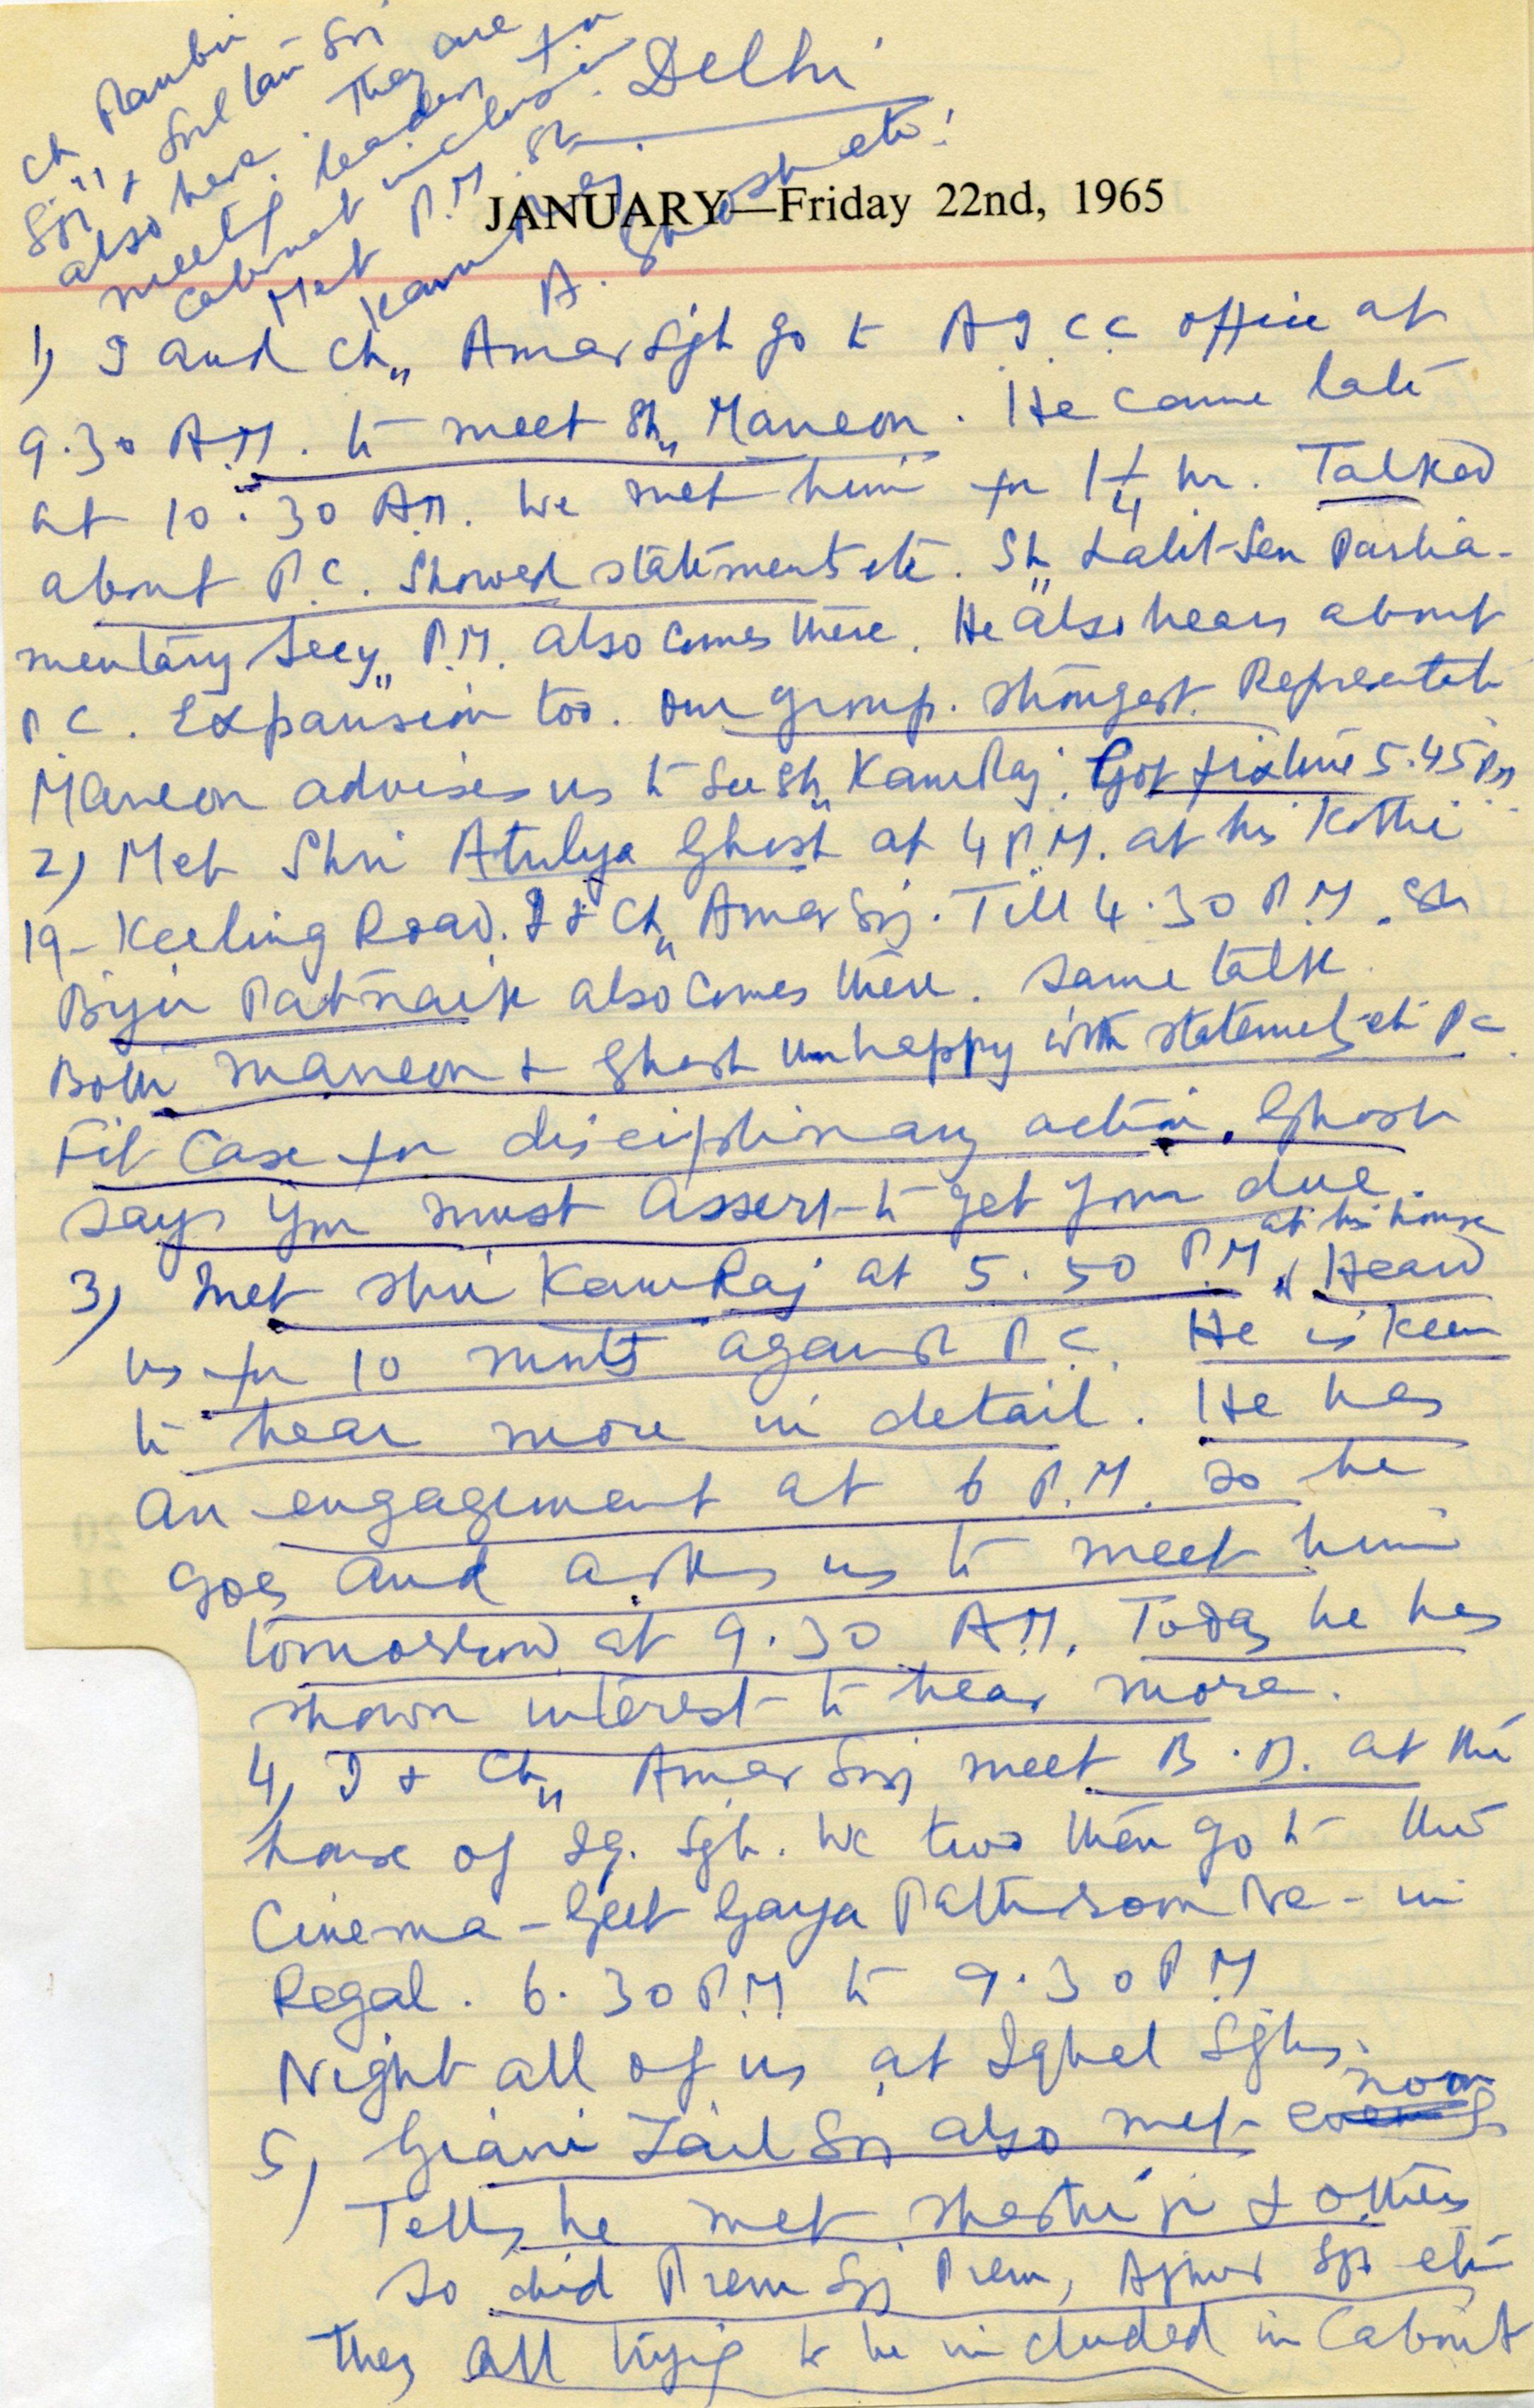 Delhi
Ch,, Ranbir
Sgh + Sultan Sgh
also here. They are
meeting leaders for
cabinet inclusion.
Met P.M. Sh.
Kam Raj,
A. Ghosh etc.
JANUARY—Friday 22nd, 1965
1) I and Ch,, Amar Sgh go to A.I.C.C. office at
9.30 A.M. to meet Sh,, Maneon. He came late
at 10.30 A.M. We met him for 1 1/4 hr. Talked
about P.C. Showed statements etc. Sh,, Lalit Sen Parlia-
mentary Secy,, P.M. also comes there. He also hears about
P.C. Expansion too. Our group. strongest. Represent
Maneon advises us to see Sh,, KamRaj. Got fix time 5.45 P.M
2) Met Shri Atulya Ghosh at 4 P.M. at his Kothi
19- Keeling Road. I + Ch,, Amar Sgj. Till 4.30 P.M. Sh
Biju Patnaik also comes there. Same talk.
Both Maneon + Ghosh unhappy with statements etc P.C.
Fit Case for disciplinary action. Ghosh
says you must assert to get your due.
at his house
3) Met Shri KamRaj at 5.50 P.M,, Heard
us for 10 mnts against P.C. He is keen
to hear more in detail. He has
an engagement at 6 P.M. so he
goes and asks us to meet him
tomorrow at 9.30 A.M. Today he has
shown interest to hear more.
4) I + Ch,, Amar Sgj meet B.D. at the
house of Iq. Sgh. We two then go to the
Cinema - Geet Gaya Patharon Ne - in
Regal. 6.30 P.M to 9.30 P.M
Night all of us at Iqbal Sghs.
noon
5) Giani Zail Sgj also met
Tells he met Shastri ji + others
So did Prem Sgj Prem, Ajmer Sgh etc
They all trying to be included in Cabinet